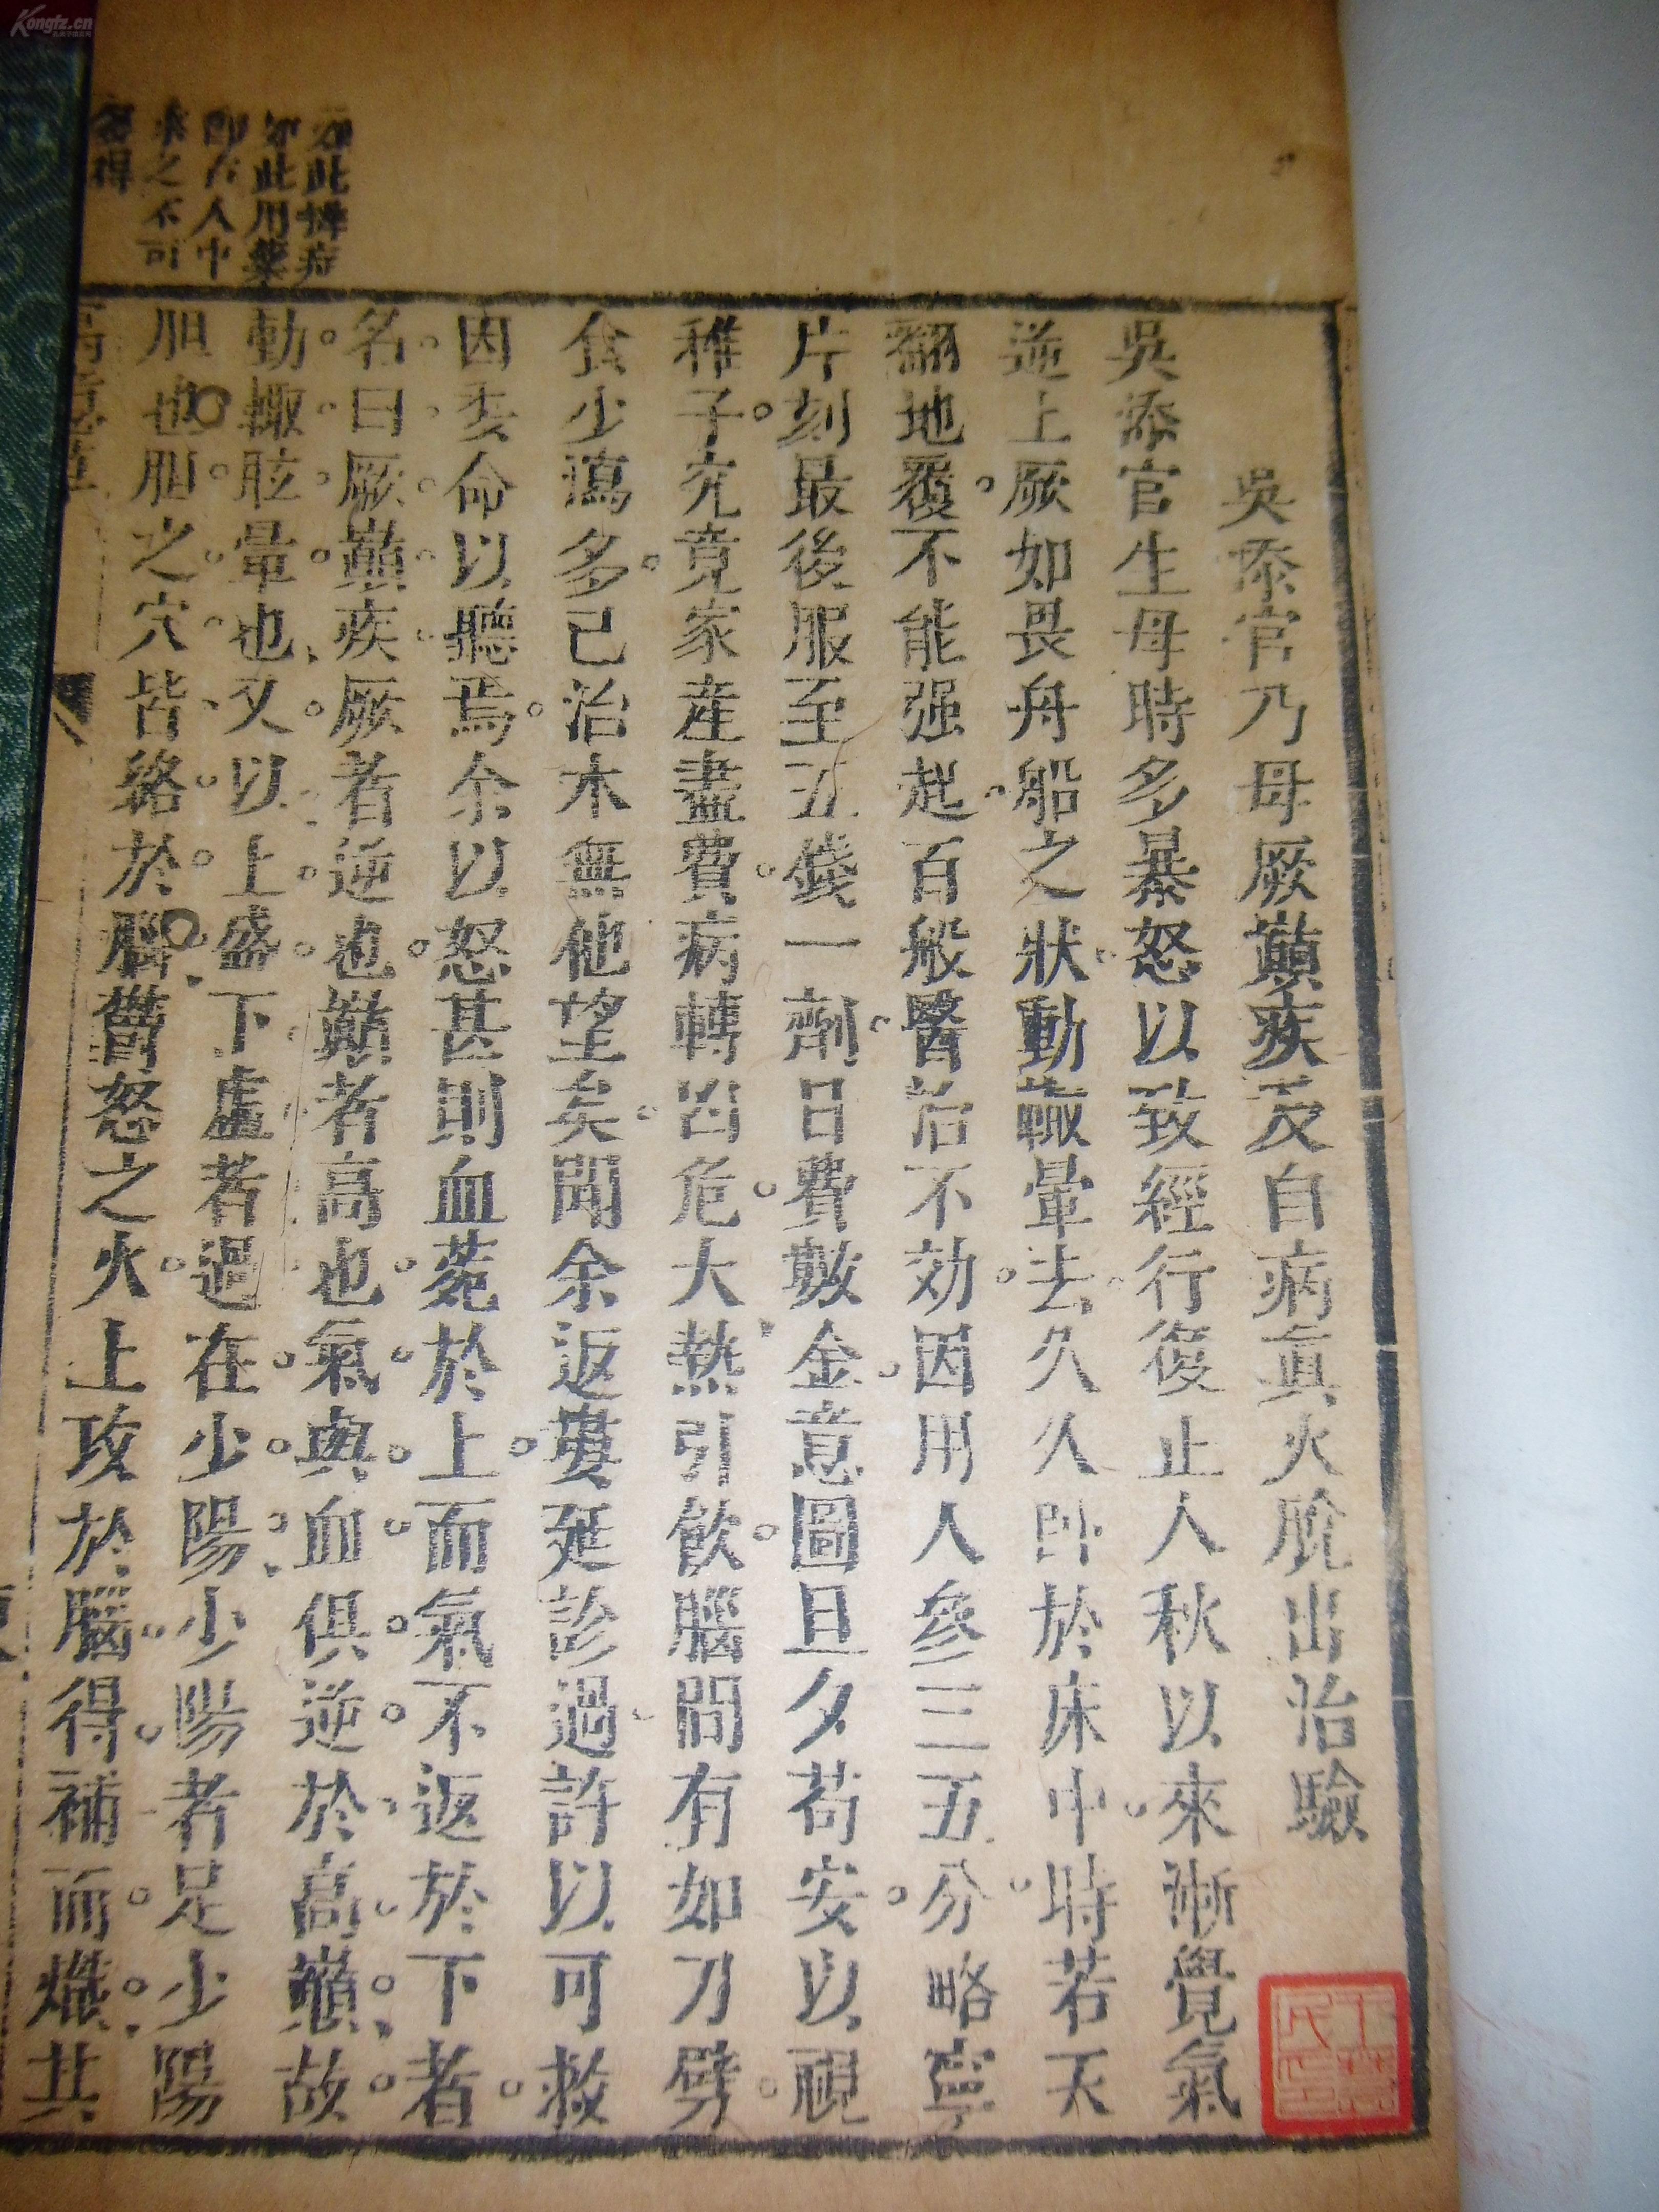 吳添官乃母厥巔疾及自病眞火脫出治驗
吳添官生母時多暴怒以致經行復止人秋以來漸覺氣
逆上厥如畏舟船之狀動輙暈去久久卧於床中時若天
翻地覆不能强起百般醫治不効因用人參三五分略寧
片刻最後服至五錢一劑日費數金意圖旦夕苟安以視
稚子究竟家産盡費病轉凶危大熱引飲腦間有如刀劈
食少瀉多已治木無他望矣聞余返婁延診過許以可救
因委命以聽焉余以怒甚則血菀於上而氣不返於下者
名曰厥巔疾厥者逆也巔者高也氣與血俱逆於高巔故
動輙眩暈也又以上盛下虛者過在少陽少陽者足少陽
胆也胆之穴皆絡於腦欝怒之火上攻於腦得補而熾其
如此用藥
求之不可
多得
Kongfz.cn